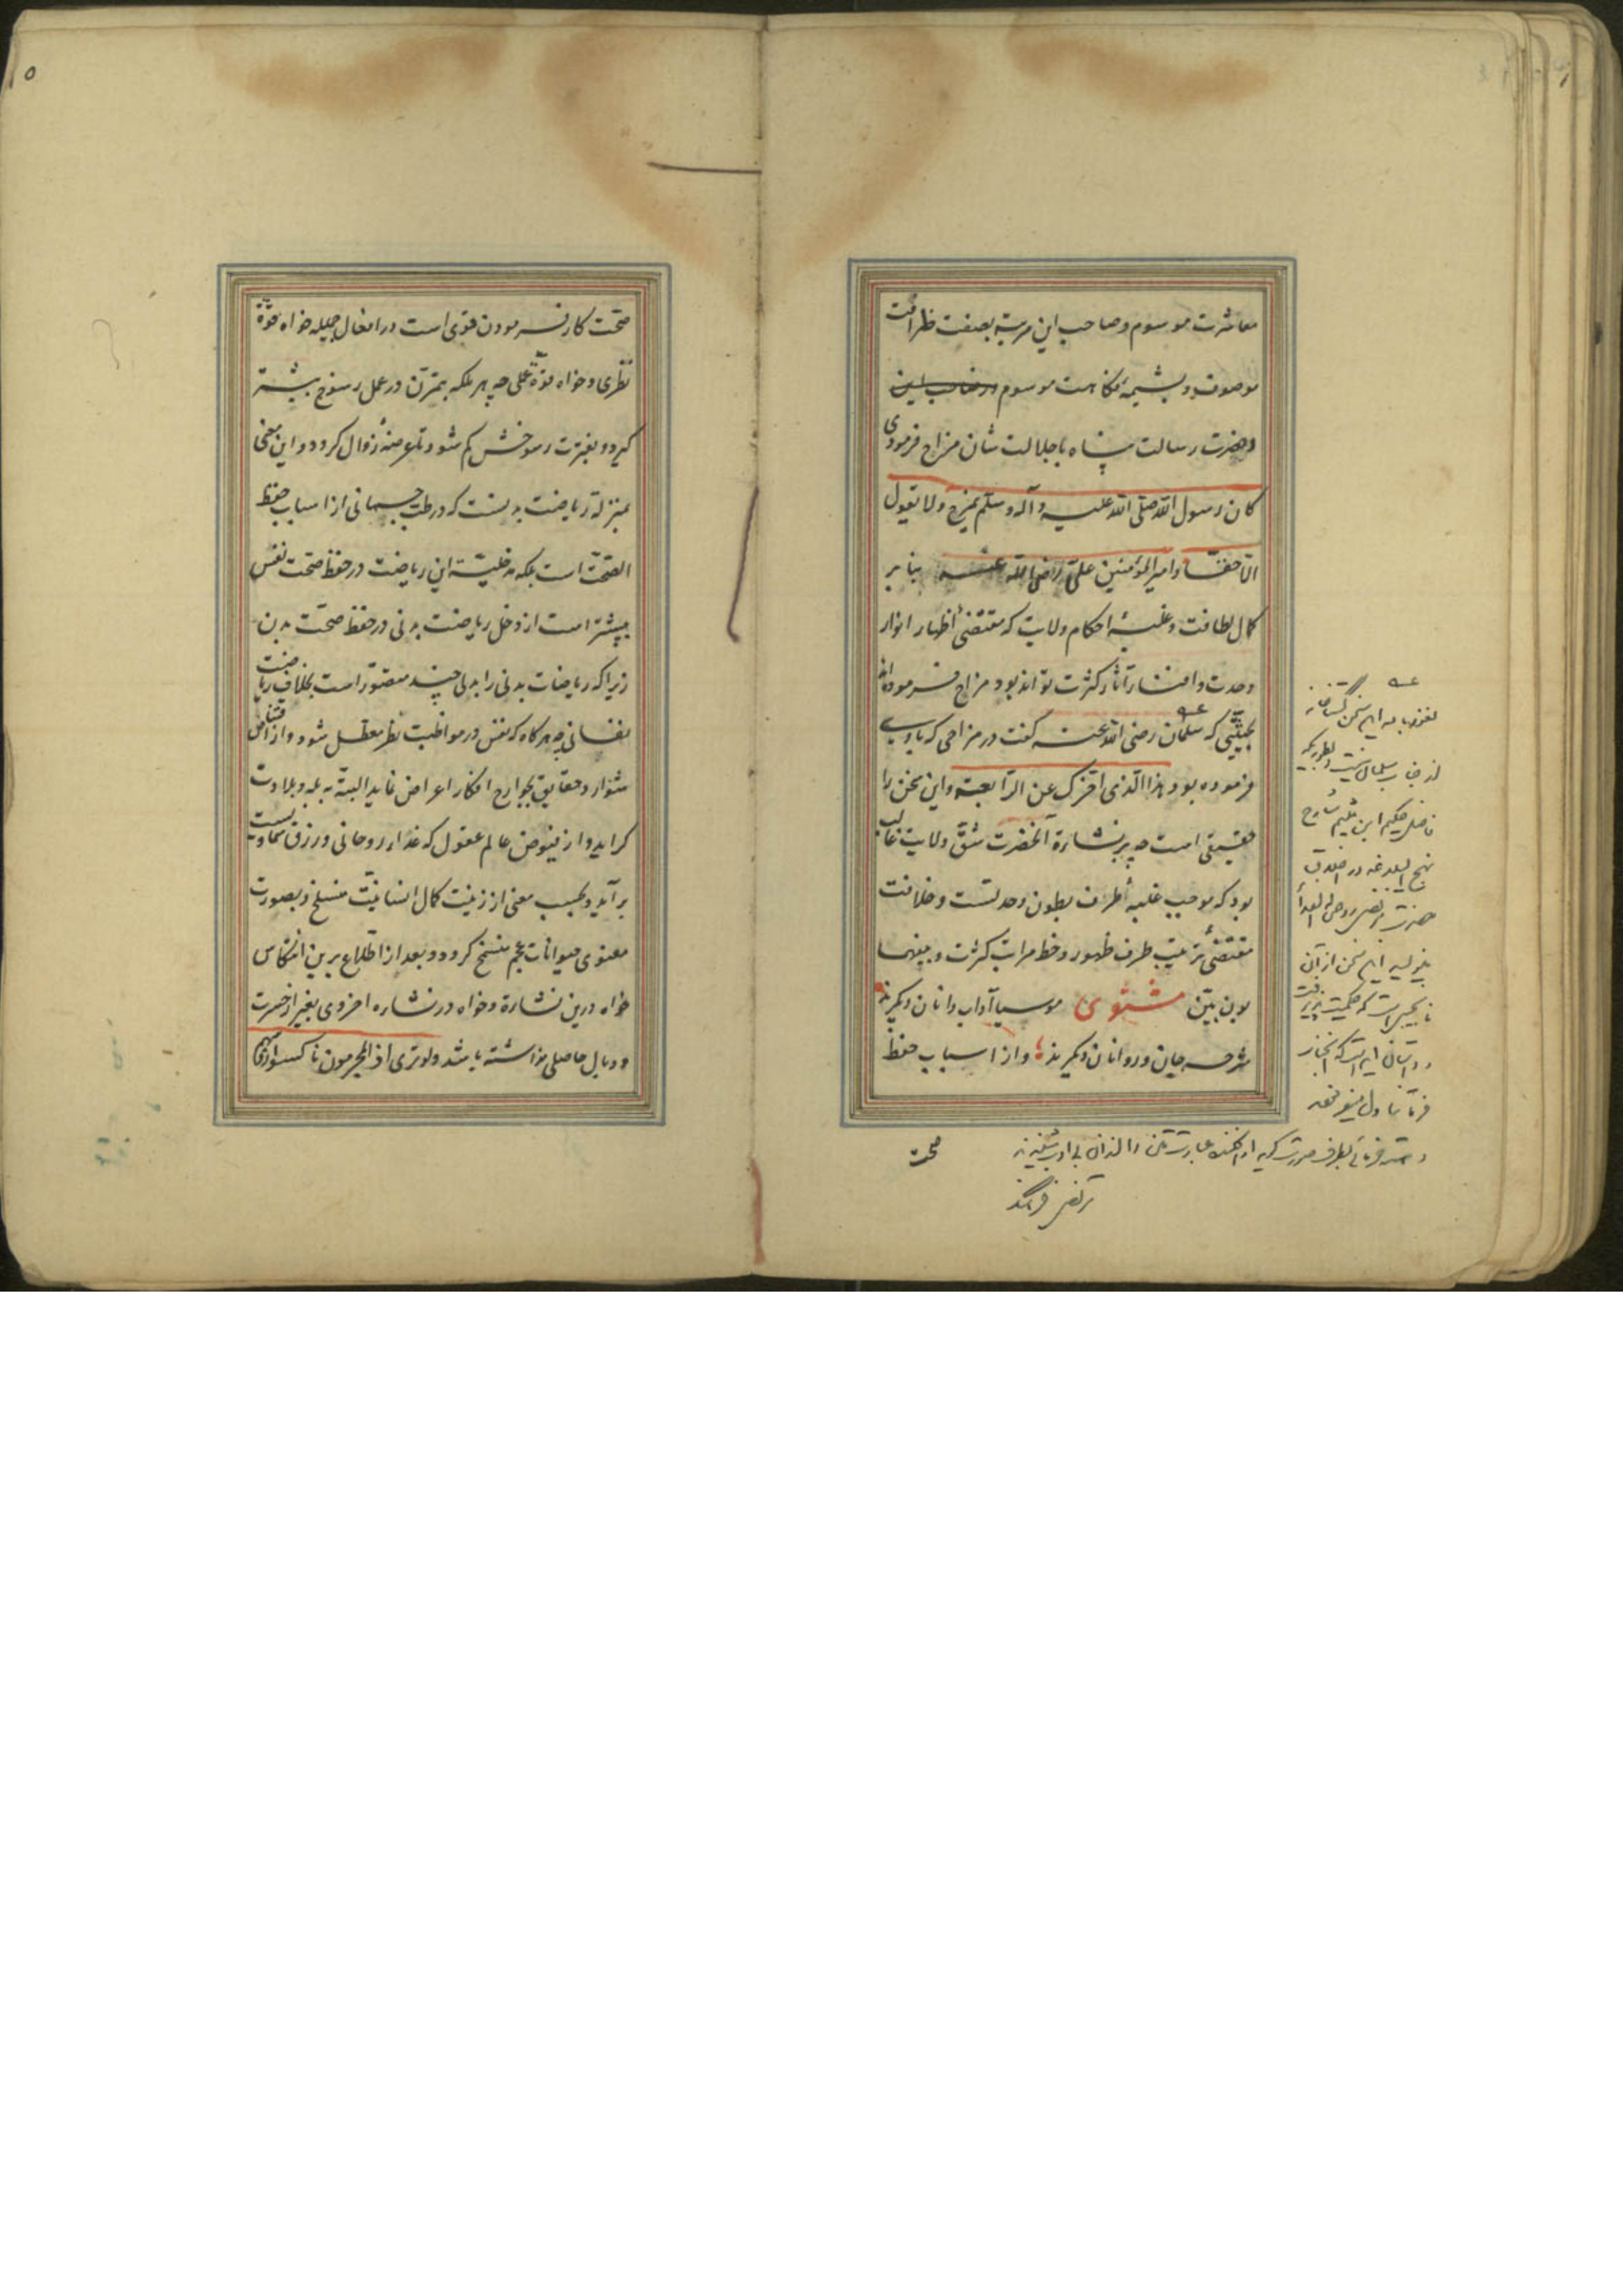 معاشرت موسوم و صاحب این مرتبه بصفت ظرافت
موصوف و بشیمهٔ فکاهت موسوم و صاحب این
و حضرت رسالت پناه با جلالت شان مزاح فرمودی
کان رسول الله صلی الله علیه و آله و سلم یمزح و لا یقول
الا حقا و امیر المؤمنین علی رضی الله عنه بنابر
کمال لطافت و غلبهٔ احکام ولایت که مقتضیٔ اظهار انوار
وحدت و افشار آثار کثرت تواند بود مزاح فرموده اند
بحیثیتی که سلمان رضی الله عنه گفت در مزاحی که با وی
فرموده بود هذا الذی اخرک عن الرابعة و این سخن را
حقیقتی است چه بر نشارة آنحضرت شق ولایت غالب
بود که موجب غلبهٔ طرف بطون وحدتست و خلافت
مقتضیٔ ترتیب طرف ظهور و حفظ مراتب کثرت و بینهما
بون بین مثنوی موسیا آداب دانان دیگرند
سوخته جان و روانان دیگرند و از اسباب حفظ
نعوذ بالله این سخن گستاخانه
از جناب سلمان نیست بطوریکه
فاضل حکیم ابن میثم شارح
نهج البلاغه در اخلاق
حضرت مرتضی روحی له الفدا
این سخن از آن
صحت
صحت کار فرمودن قوی است در افعال جمیله خواه قوة
نظری و خواه قوة عملی چه هر ملکه بتمرن در عمل رسوخ بیشتر
گیرد و بفترت رسوخش کم شود تا عرضهٔ زوال گردد و این معنی
بمنزلة ریاضت بدنست که در طب جسمانی از اسباب حفظ
الصحت است بلکه مدخلیت این ریاضت در حفظ صحت نفس
بیشتر است از دخل ریاضت بدنی در حفظ صحت بدن
زیرا که ریاضات بدنی را بدلی چند متصور است بخلاف ریاضت
نفسانی چه هرگاه که نفس در مواظبت نظر معطل شود و از اقتناص
شوارد حقایق بجوارح افکار اعراض نماید البته به بله و بلادت
گراید و از فیوض عالم عقول که غذاء روحانی و رزق سماویست
برآید و بحسب معنی از زینت کمال انسانیت منسلخ و بصورت
معنوی حیوانات عجم منسخ گردد و بعد از اطلاع برین انتکاس
خواه درین نشارة و خواه در نشاره اخروی بغیر از حسرت
و وبال حاصلی نداشته باشد ولو تری اذ المجرمون ناکسوا رؤسهم